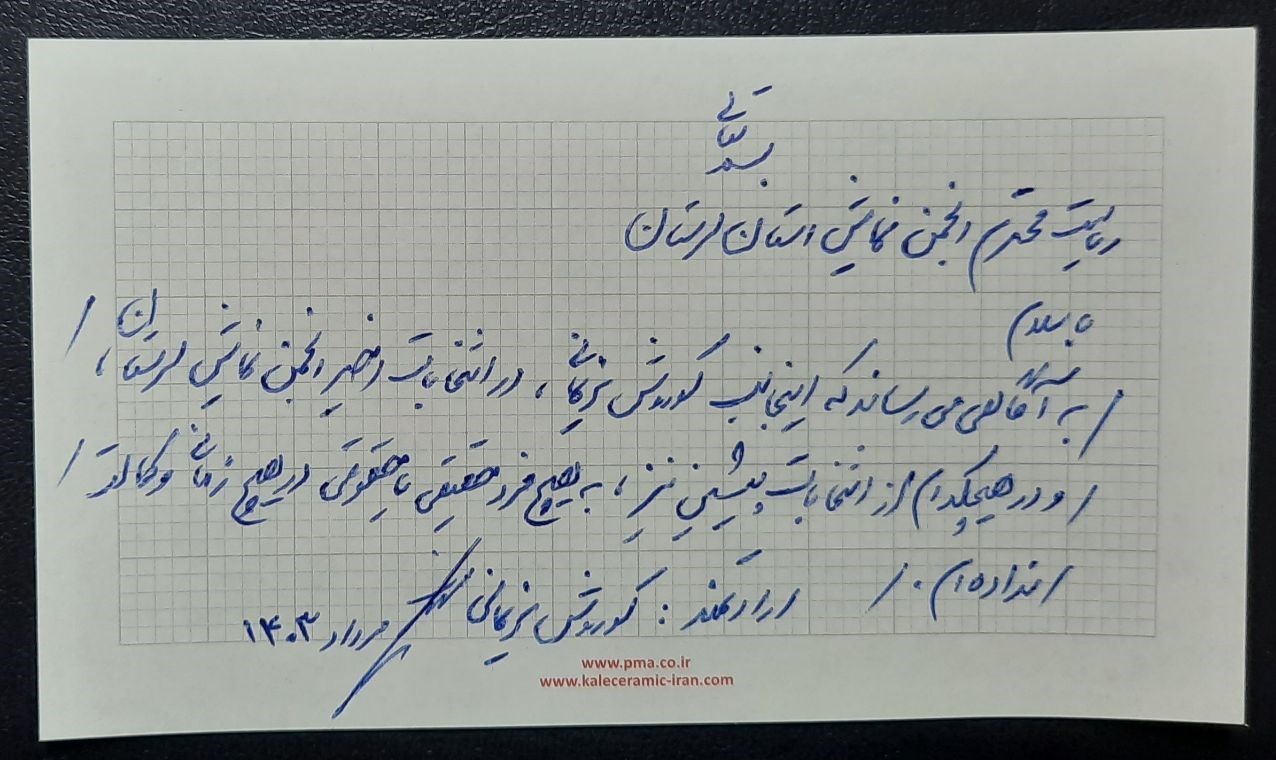 بسمه تعالی
ریاست محترم انجمن نمایش استان لرستان
با سلام
به آگاهی می رساند که اینجانب کوروش نریمانی، در انتخابات اخیر انجمن نمایش لرستان،
و در هیچکدام از انتخابات پیشین نیز، به هیچ فرد حقیقی یا حقوقی در هیچ زمانی وکالت
نداده ام.
ارادتمند: کوروش نریمانی
مرداد ۱۴۰۳
www.pma.co.ir
www.kaleceramic-iran.com